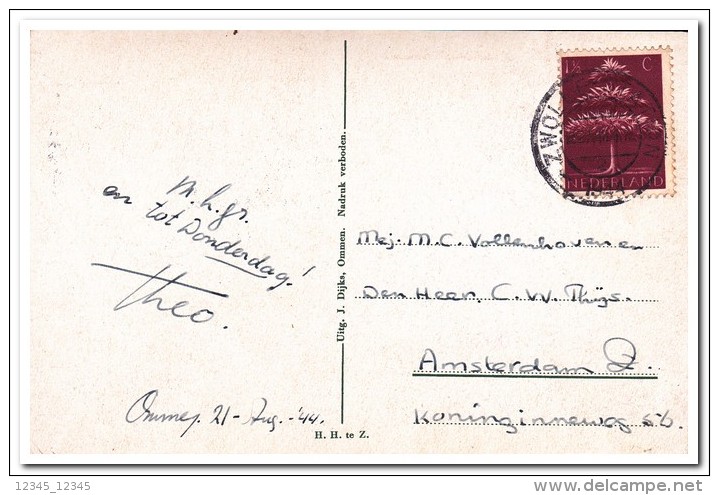 1½ C
NEDERLAND
ZWOL
en m. h. gr.
tot Donderdag!
Theo.
Ommen 21-Aug.-'44.
Uitg. J. Dijks, Ommen. Nadruk verboden.
H. H. te Z.
Mej. M. C. Vollenhoven en
Den Heer C. W. Thijs.
Amsterdam Z.
Koninginneweg 56.
12345_12345
www.delcampe.net